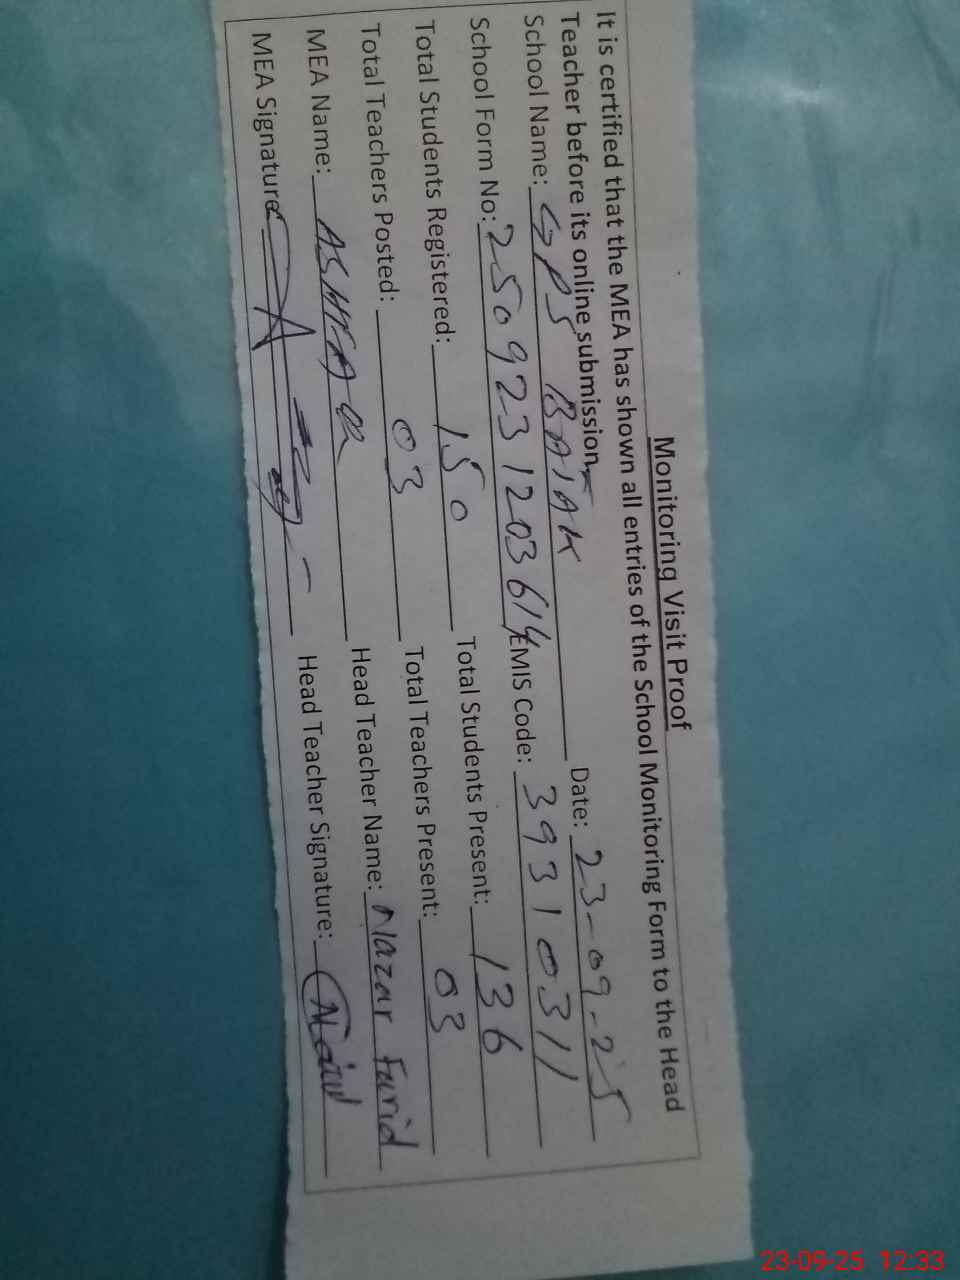 Monitoring Visit Proof
It is certified that the MEA has shown all entries of the School Monitoring Form to the Head
Teacher before its online submission.
School Name: GPS BAIAK Date: 23-09-25
School Form No: 2509231203614 EMIS Code: 39310311
Total Students Registered: 150 Total Students Present: 136
Total Teachers Posted: 03 Total Teachers Present: 03
MEA Name: Head Teacher Name: Nazar Farid
MEA Signature: Head Teacher Signature:
23-09-25 12:33